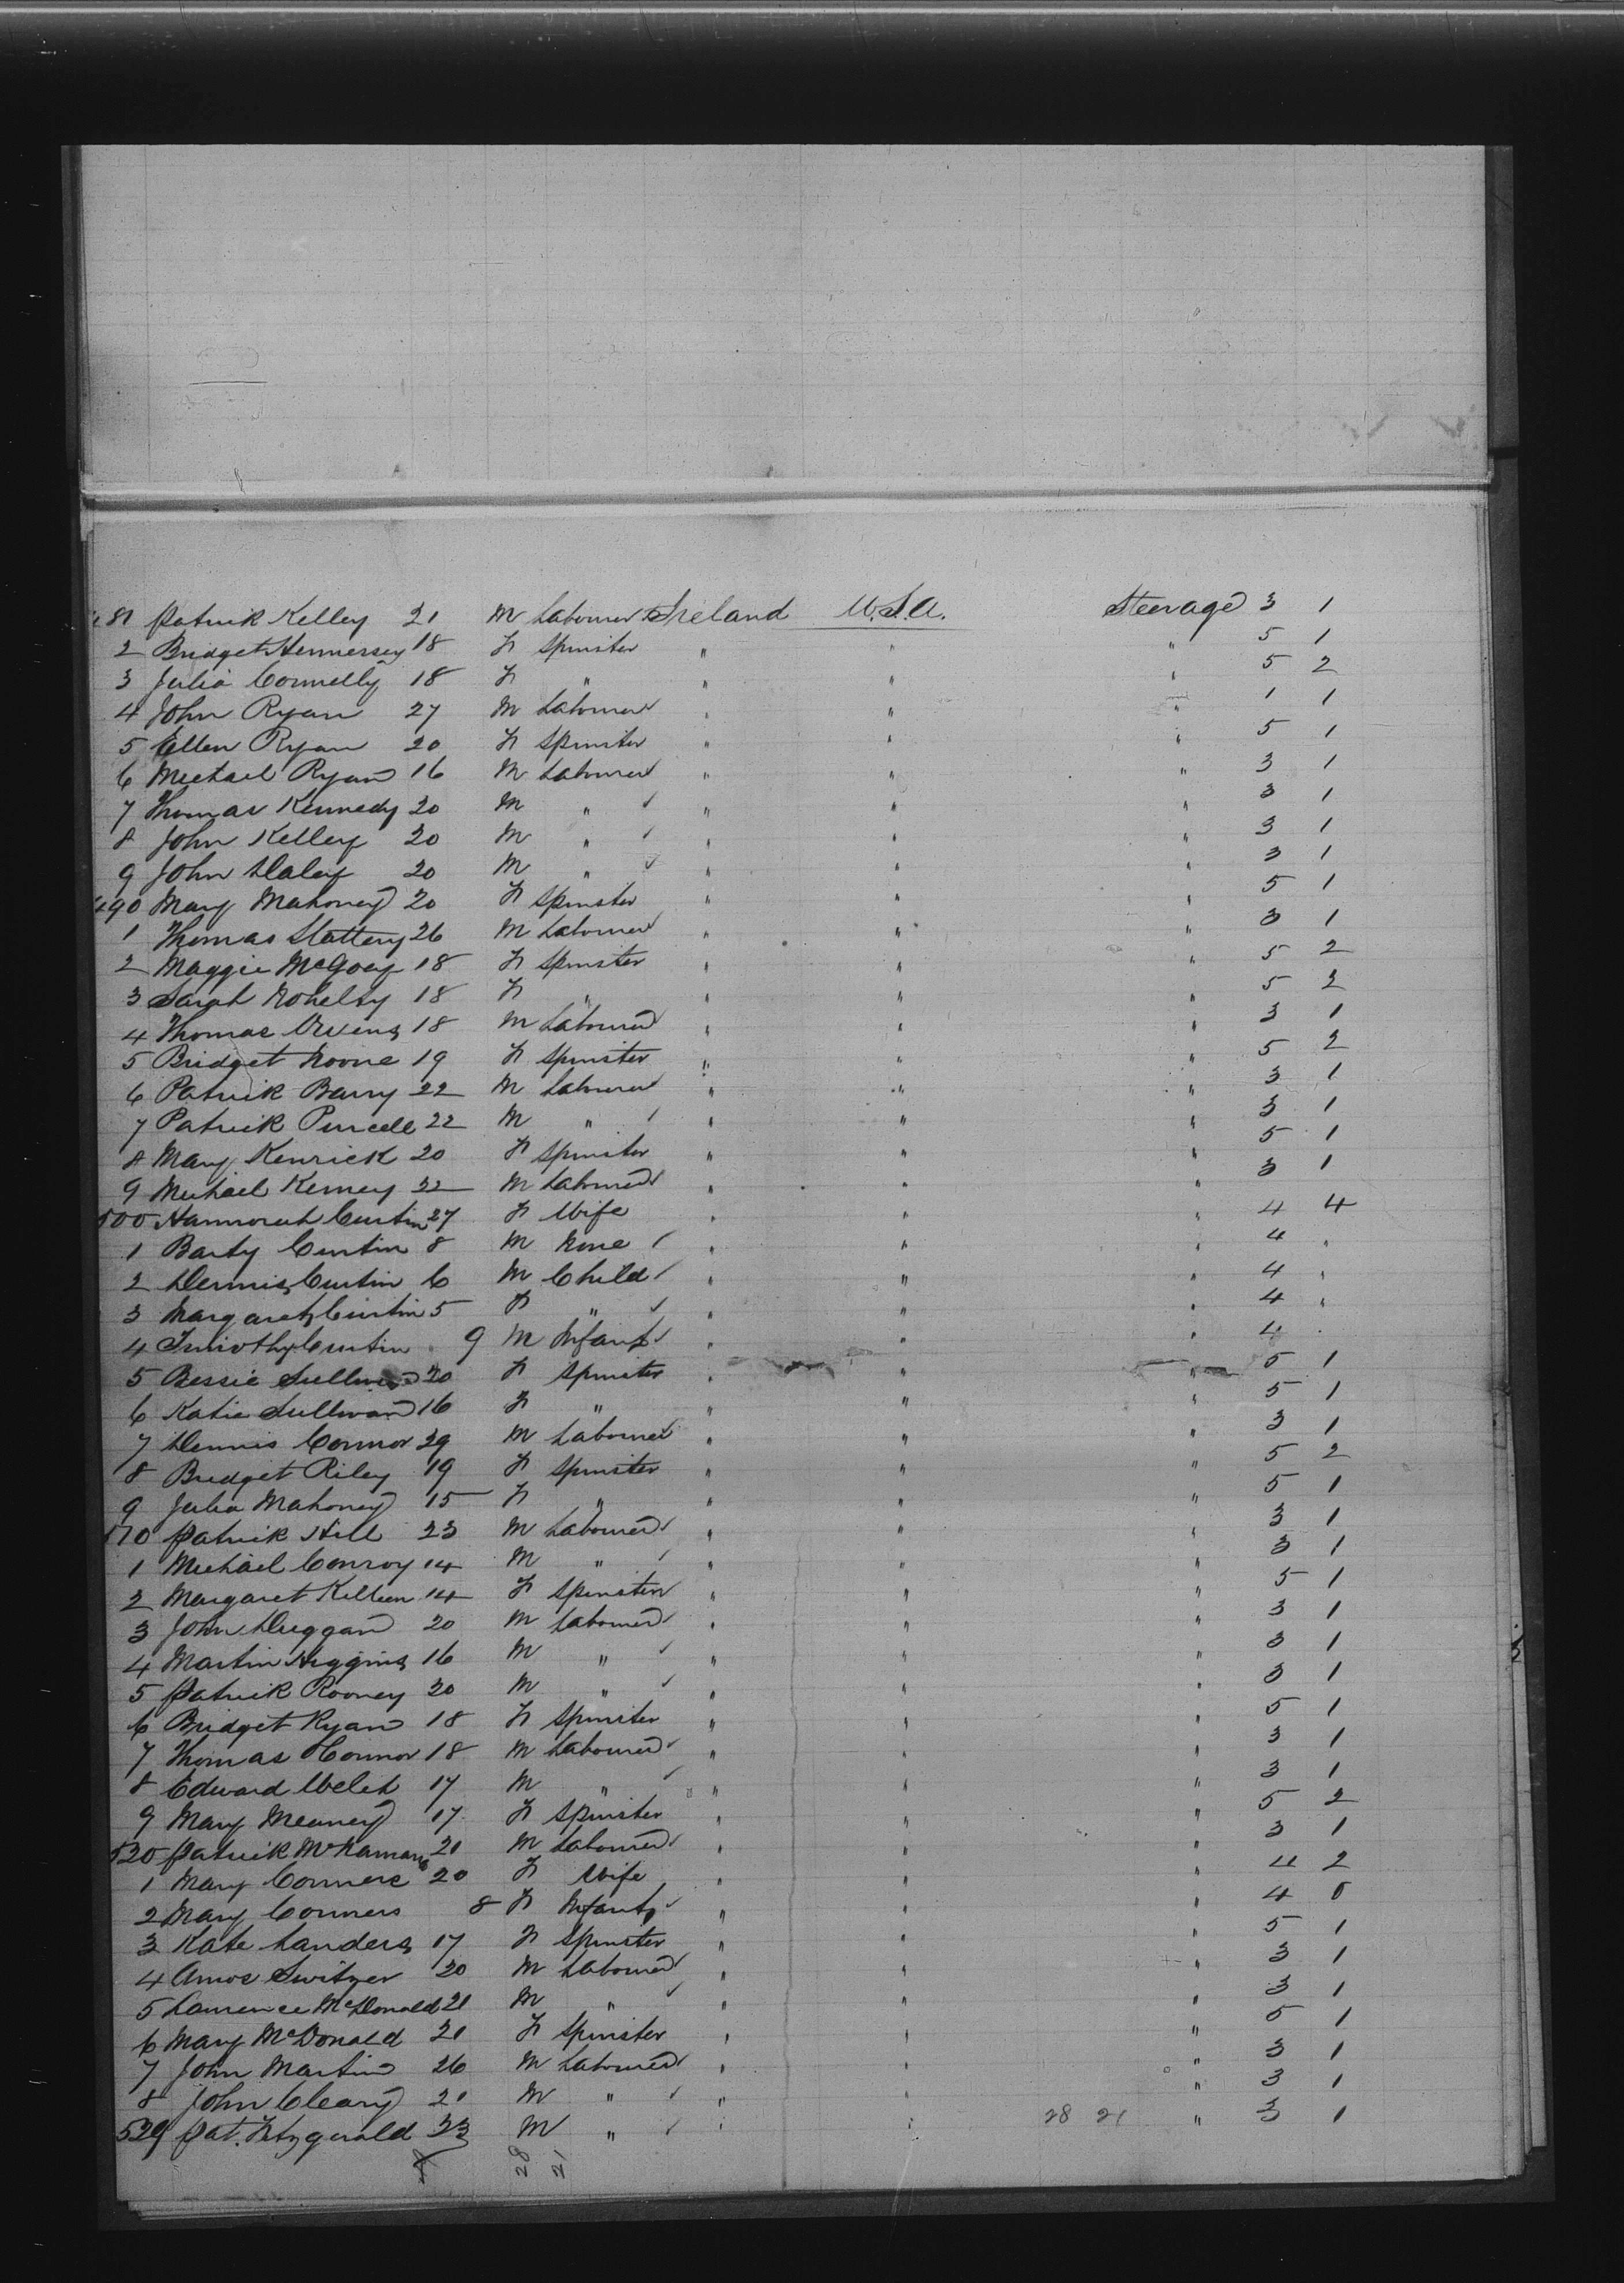 481 Patrick Kelley 21 M Labourer Ireland U.S.A. Steerage 3 1
2 Bridget Hennersey 18 F Spinster " " " 5 1
3 Julia Connelly 18 F " " " " 5 2
4 John Ryan 27 M Labourer " " " 1 1
5 Ellen Ryan 20 F Spinster " " " 5 1
6 Michael Ryan 16 M Labourer " " " 3 1
7 Thomas Kennedy 20 M " " " " 3 1
8 John Kelley 20 M " " " " 3 1
9 John Daley 20 M " " " " 3 1
490 Mary Mahoney 20 F Spinster " " " 5 1
1 Thomas Slattery 26 M Labourer " " " 3 1
2 Maggie McGoey 18 F Spinster " " " 5 2
3 Sarah 18 F " " " " 5 2
4 Thomas Owens 18 M Labourer " " " 3 1
5 Bridget Noone 19 F Spinster " " " 5 2
6 Patrick Barry 22 M Labourer " " " 3 1
7 Patrick Purcell 22 M " " " " 3 1
8 Mary Kenrick 20 F Spinster " " " 5 1
9 Michael Kerney 22 M Labourer " " " 3 1
500 Hannorah Curtin 27 F Wife " " " 4 4
1 Barty Curtin 8 M None " " " 4 "
2 Dennis Curtin 6 M Child " " " 4 "
3 Margaret Curtin 5 F " " " " 4 "
4 Timothy Curtin 9 M Infant " " " 4 "
5 Bessie Sullivan 20 F Spinster " " " 5 1
6 Katie Sullivan 16 F " " " " 5 1
7 Dennis Connor 29 M Labourer " " " 3 1
8 Bridget Riley 19 F Spinster " " " 5 2
9 Julia Mahoney 15 F " " " " 5 1
510 Patrick Hill 23 M Labourer " " " 3 1
1 Michael Conroy 14 M " " " " 3 1
2 Margaret Killeen 14 F Spinster " " " 5 1
3 John Duggan 20 M Labourer " " " 3 1
4 Martin Higgins 16 M " " " " 3 1
5 Patrick Rooney 20 M " " " " 3 1
6 Bridget Ryan 18 F Spinster " " " 5 1
7 Thomas Connor 18 M Labourer " " " 3 1
8 Edward Welch 17 M " " " " 3 1
9 Mary Meaney 17 F Spinster " " " 5 2
520 Patrick McNamara 21 M Labourer " " " 3 1
1 Mary Conners 20 F Wife " " " 4 2
2 Mary Conners 8 F Infant " " " 4 0
3 Kate Landers 17 F Spinster " " " 5 1
4 Amos Switzer 20 M Labourer " " " 3 1
5 Laurence McDonald 21 M " " " " 3 1
6 Mary McDonald 21 F Spinster " " " 5 1
7 John Martin 26 M Labourer " " " 3 1
8 John Cleary 21 M " " " " 3 1
529 Pat. Fitzgerald 23 M " " " 28 21 " 3 1
28 21